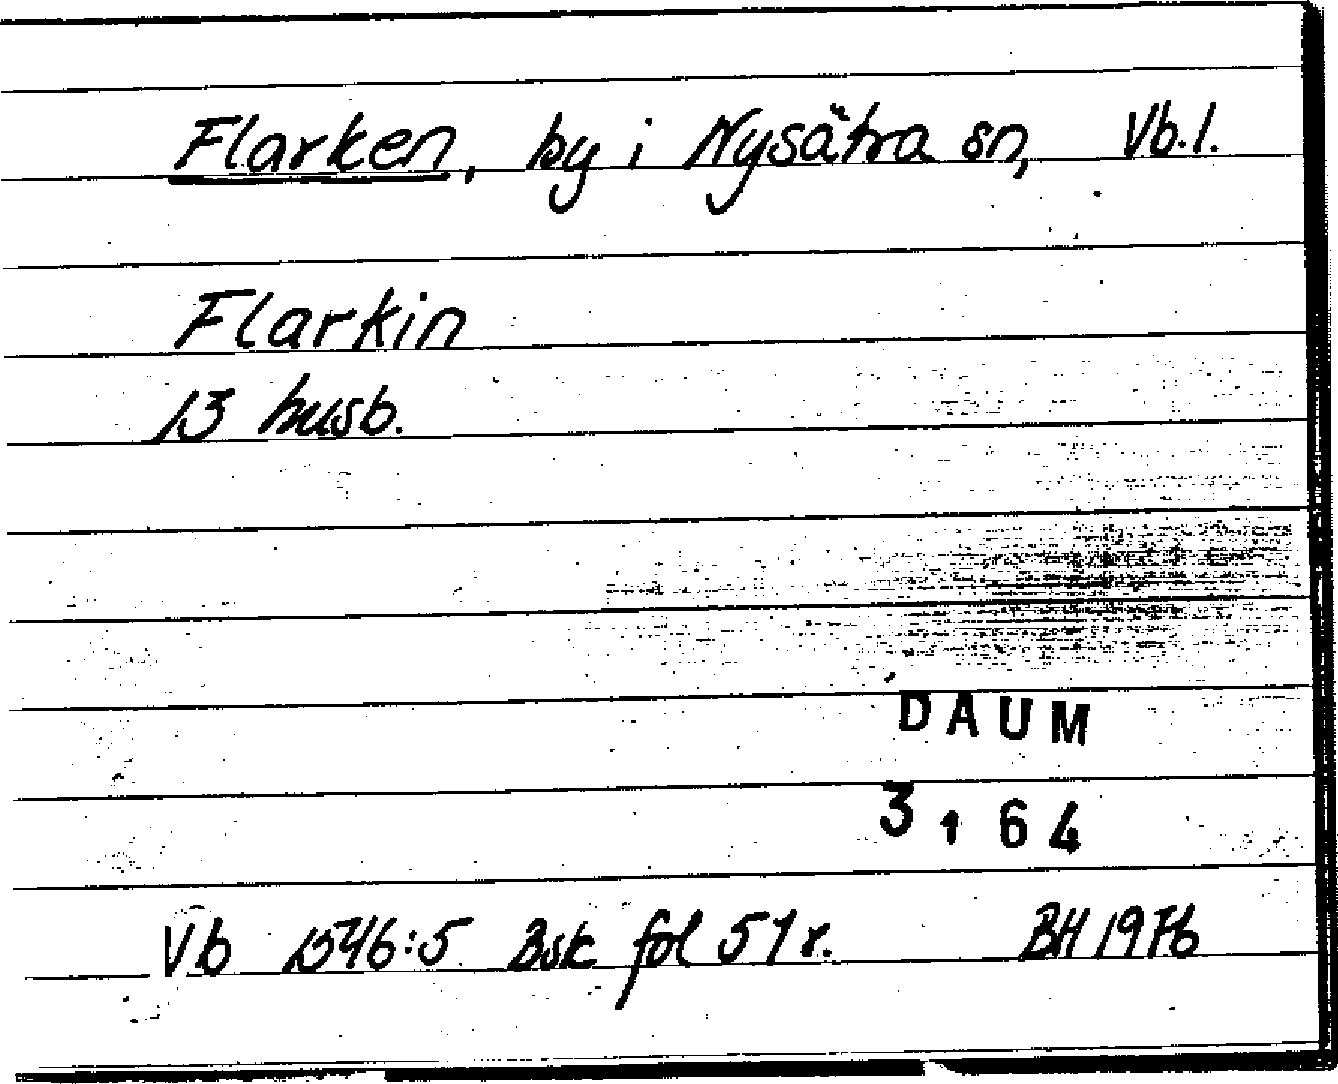 Flarken, by i Nysätra sn, Vb.l.
Flarkin
13 husb.
DAUM
3164
Vb 1546:5 Bsk fol 51 r. BH 1976